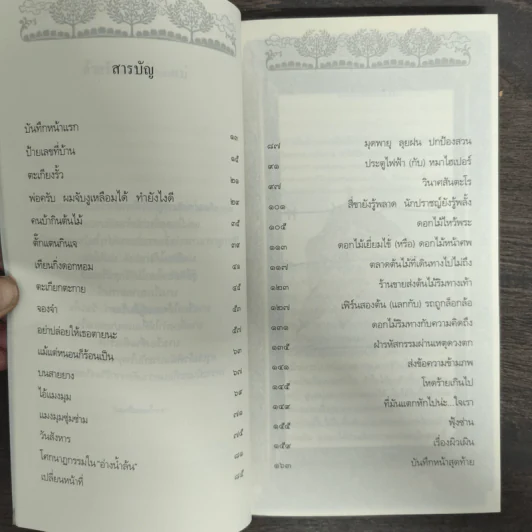 สารบัญ
บันทึกหน้าแรก ๑๓
ป้ายเลขที่บ้าน ๑๕
ตะเกียงรั้ว ๒๑
พ่อครับ ผมจับงูเหลือมได้ ทำยังไงดี ๒๙
คนบ้ากินต้นไม้ ๓๕
ตั๊กแตนกินแจ ๓๙
เทียนกิ่งดอกหอม ๔๑
ตะเกียกตะกาย ๔๕
จองจำ ๕๓
อย่าปล่อยให้เธอตายนะ ๕๗
แม้แต่หนอนก็ร้อนเป็น ๖๓
บนสายยาง ๖๗
ไอ้แมงมุม ๖๙
แมงมุมซุ่มซ่าม ๗๑
วันสังหาร ๗๕
โศกนาฏกรรมใน "อ่างน้ำล้น" ๘๑
เปลี่ยนหน้าที่ ๘๕
๘๗ มุดพายุ ลุยฝน ปกป้องสวน
๙๑ ประตูไฟฟ้า (กับ) หมาไฮเปอร์
๙๗ วินาศสันตะโร
๑๐๑ สี่ขายังรู้พลาด นักปราชญ์ยังรู้พลั้ง
๑๐๕ ดอกไม้ไหว้พระ
๑๑๓ ดอกไม้เยี่ยมไข้ (หรือ) ดอกไม้หน้าศพ
๑๑๗ ตลาดต้นไม้ที่เดินทางไปไม่ถึง
๑๒๓ ร้านขายส่งต้นไม้ริมทางเท้า
๑๒๗ เฟิร์นสองต้น (แลกกับ) รถถูกล็อกล้อ
๑๓๑ ดอกไม้ริมทางกับความคิดถึง
๑๓๕ ฝ่ารหัสกรรมผ่านเหตุดวงตก
๑๔๑ ส่งข้อความข้ามภพ
๑๔๕ โหดร้ายเกินไป
๑๔๙ ที่มันแตกหักไปน่ะ...ใจเรา
๑๕๕ ฟุ้งซ่าน
๑๕๙ เรื่องผิวเผิน
๑๖๓ บันทึกหน้าสุดท้าย